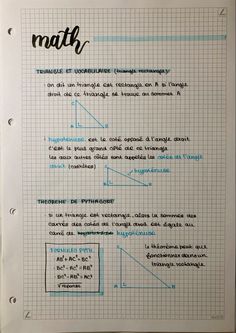 math
TRIANGLE ET VOCABULAIRE (triangle rectangle):
• on dit un triangle est rectangle en A si l'angle
droit de ce triangle se trouve au sommet A
C
A
B
• hypoténuse est le côté opposé à l'angle droit
c'est le plus grand côté de ce triangle
les deux autres côtés sont appelés les côtés de l'angle
droit (cathètes)
hypoténuse
THEOREME DE PYTHAGORE
• si un triangle est rectangle, alors la somme des
carrés des côtés de l'angle droit est égale au
carré de hypoténuse
FORMULES PYTH.
• AB² + AC² = BC²
• BC² - AC² = AB²
• BC² - AB² = AC²
√ réponse
C
A
B
le théorème peut que
fonctionner dans un
triangle rectangle